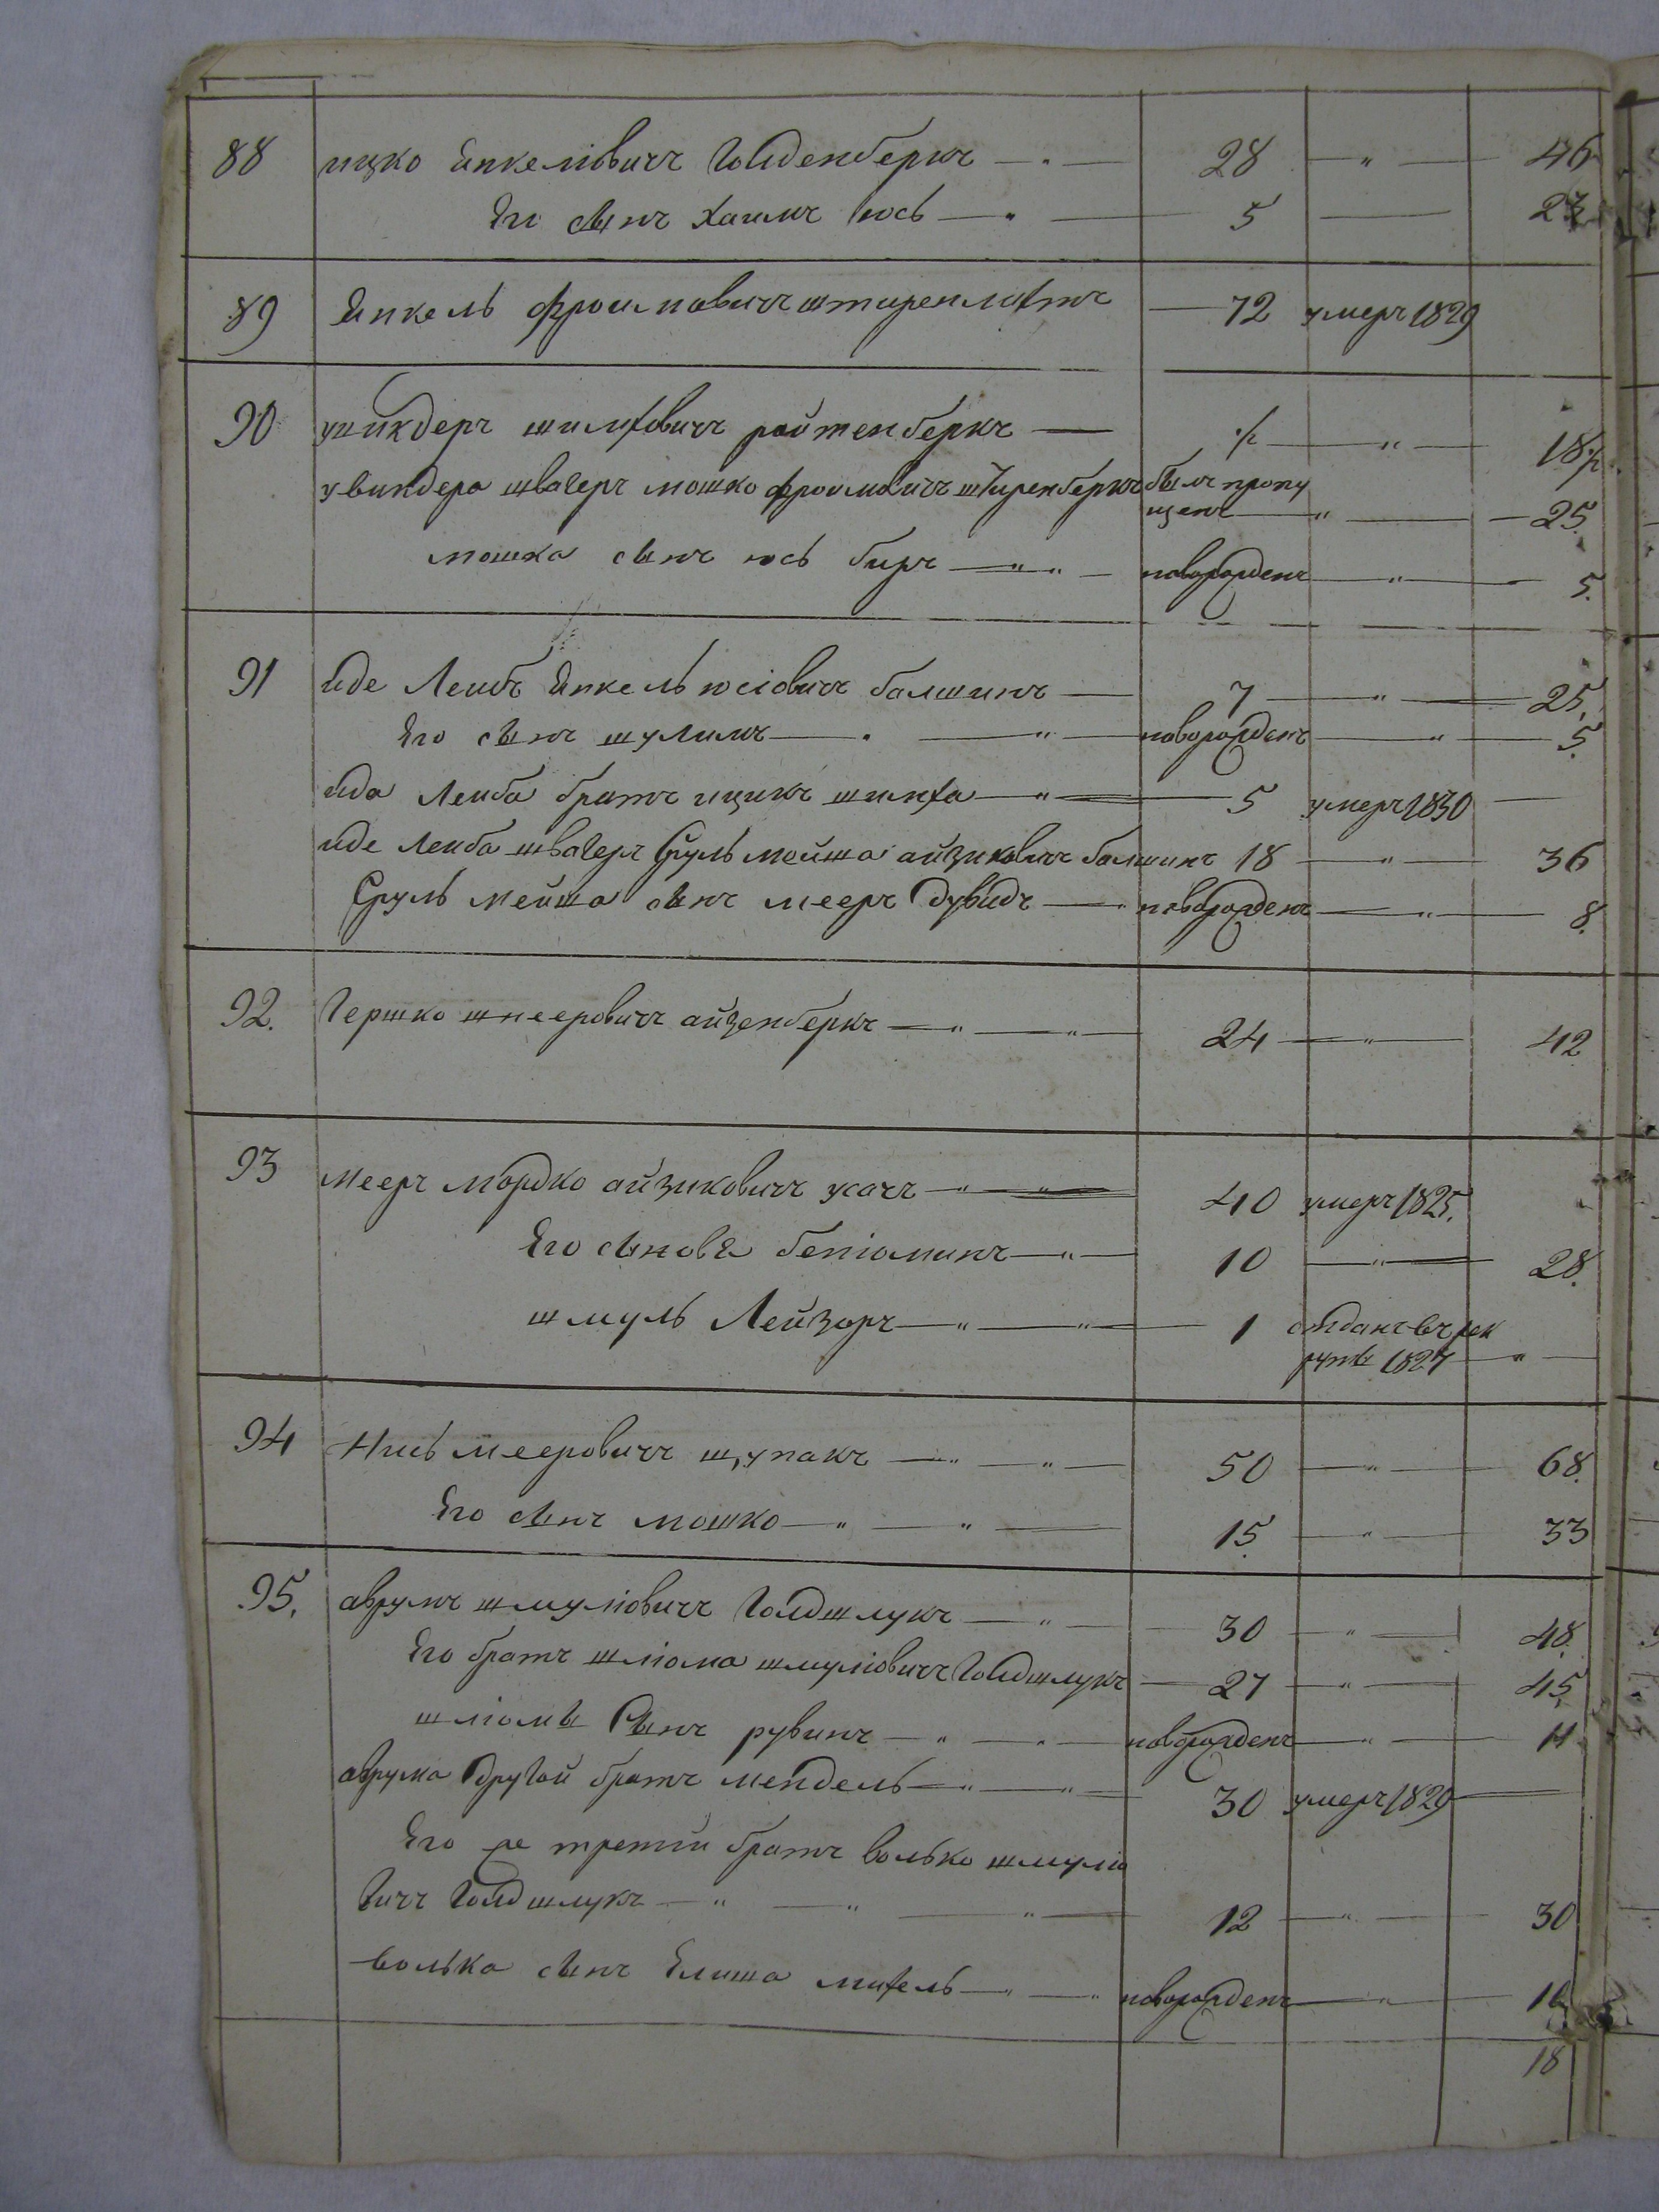 88 ицко Янкеліовичъ Голденберкъ — 28 — " — 46
Его сынъ Хаимъ юсь — 5 — 23
89 Янкель Фроимовичъ — 72 умеръ 1829
90 шимховичъ ройтенберкъ — ½ — " — 18½
увиндера швагеръ мошко Фроимовичъ штиренберкъ былъ пропу
щенъ — " — 25
мошка сынъ юсь беръ — " " — новорожденъ — " — 5.
91 иде Леибъ Янкель юсіовичъ балшинъ — 7 — " — 25.
Его сынъ шулимъ — " — новорожденъ — " — 5.
ида Леиба братъ ицикъ шимха — " — 5 умеръ 1830 —
иде Леиба швагеръ Сруль мейша айзиковичъ балшинъ 18 — " — 36
Сруль мейша сынъ мееръ Дувидъ — новорожденъ — " — 8.
92. Гершко шнееровичъ айзенберкъ — " — " — 24 — " — 42
93 мееръ мордко айзиковичъ усачъ — " — " — 40 умеръ 1825.
Его сыновя беніоминъ — " — 10 — " — 28.
шмуль Лейзоръ — " — " — 1 отданъ въ рек
руты 1827 — " —
94 Нись мееровичъ щупакъ — " — " — 50 — " — 68.
Его сынъ мошко — " — " — 15 — " — 33
95. аврумъ шмуліовичъ Голдшлукъ — " — 30 — " — 48.
Его братъ шліома шмуліовичъ Голдшлукъ — 27 — " — 45.
шліомы Сынъ рувинъ — " — " — новорожденъ — " — 11
аврума Другой братъ мендель — " — " — 30 умеръ 1829 —
Его же третій братъ волько шмуліо
вичъ Голдшлукъ — " — " — " — 12 — " — 30
волька сынъ Елиша михель — " — " новорожденъ — " — 10
18